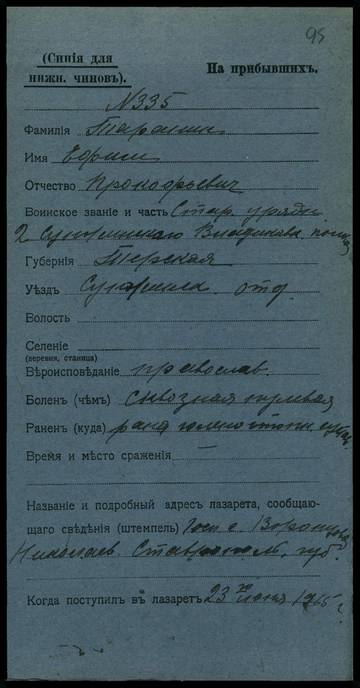 95
(Синія для
нижн. чиновъ).
На прибывшихъ.
№ 335
Фамилія
Имя
Отчество Прокофьевич
Воинское званіе и часть Стар. урядн.
2
Губернія Терская
Уѣздъ отд.
Волость
Селеніе
(деревня, станица)
Вѣроисповѣданіе православ.
Боленъ (чѣмъ) сквозная пулевая
Раненъ (куда) рана
Время и мѣсто сраженія
Названіе и подробный адресъ лазарета, сообщаю-
щаго свѣдѣнія (штемпель) Госп. с. Воронцово
Николаев. Ставропол. губ.
Когда поступил въ лазаретъ 23 июня 1915 г.